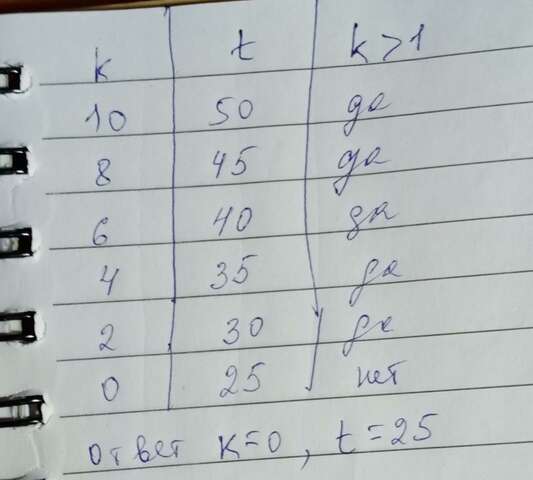 k t k>1
10 50 да
8 45 да
6 40 да
4 35 да
2 30 да
0 25 нет
ответ k=0, t=25